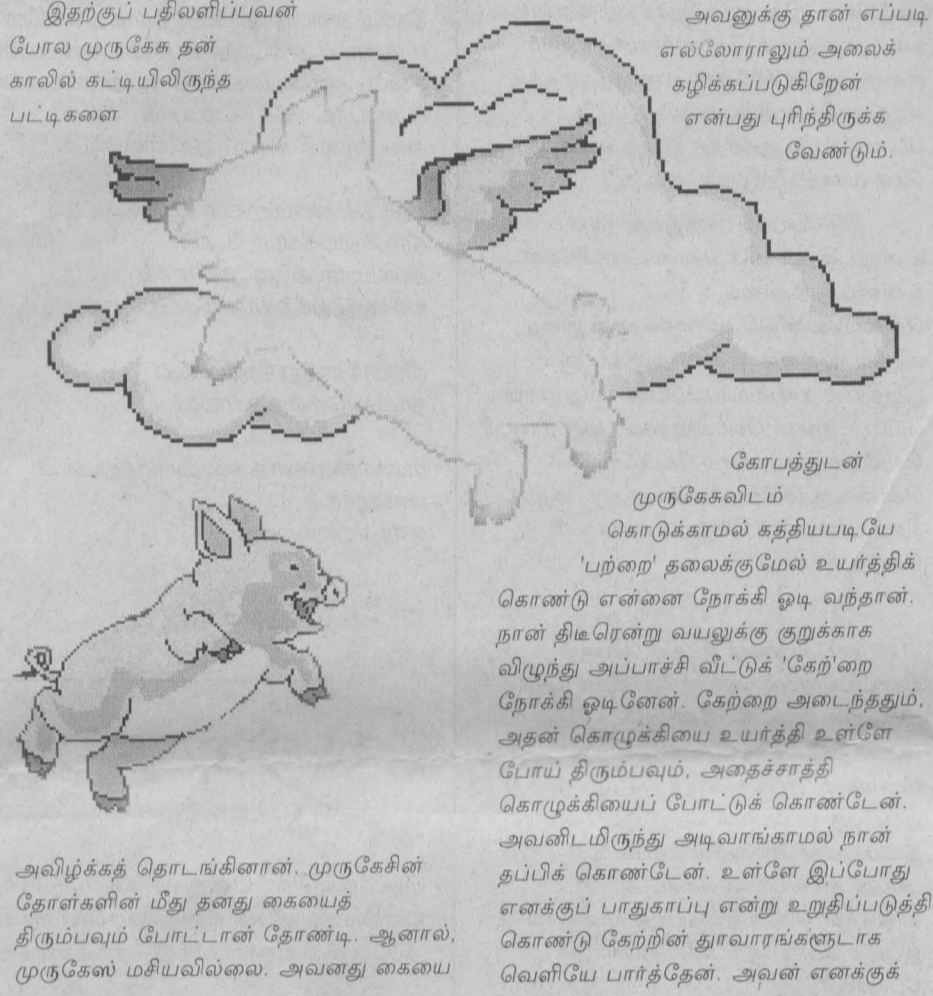 இதற்குப் பதிலளிப்பவன்
போல முருகேசு தன்
காலில் கட்டியிலிருந்த
பட்டிகளை
அவிழ்க்கத் தொடங்கினான். முருகேசின்
தோள்களின் மீது தனது கையைத்
திரும்பவும் போட்டான் தோண்டி. ஆனால்,
முருகேஸ் மசியவில்லை. அவனது கையை
அவனுக்கு தான் எப்படி
எல்லோராலும் அலைக்
கழிக்கப்படுகிறேன்
என்பது புரிந்திருக்க
வேண்டும்.
கோபத்துடன்
முருகேசுவிடம்
கொடுக்காமல் கத்தியபடியே
'பற்றை' தலைக்குமேல் உயர்த்திக்
கொண்டு என்னை நோக்கி ஓடி வந்தான்.
நான் திடீரென்று வயலுக்கு குறுக்காக
விழுந்து அப்பாச்சி வீட்டுக் 'கேற்'றை
நோக்கி ஓடினேன். கேற்றை அடைந்ததும்,
அதன் கொழுக்கியை உயர்த்தி உள்ளே
போய் திரும்பவும், அதைச்சாத்தி
கொழுக்கியைப் போட்டுக் கொண்டேன்.
அவனிடமிருந்து அடிவாங்காமல் நான்
தப்பிக் கொண்டேன். உள்ளே இப்போது
எனக்குப் பாதுகாப்பு என்று உறுதிப்படுத்தி
கொண்டு கேற்றின் துாவாரங்களூடாக
வெளியே பார்த்தேன். அவன் எனக்குக்